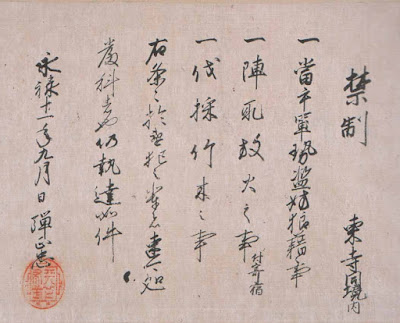 禁制 東寺同境内
一當手軍勢濫妨狼藉事
一陣取放火之事付寄宿
一伐採竹木之事
右条々於違犯之輩者速可処
厳科者也仍執達如件
永禄十一年九月日 弾正忠
天下布武